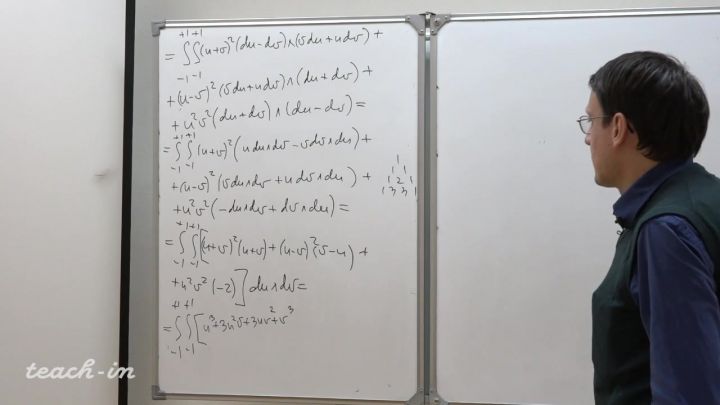 +1 +1
= ∫∫ (u+v)²(du-dv)∧(vdu+udv) +
-1 -1
+(u-v)²(vdu+udv)∧(du+dv) +
+u²v²(du+dv)∧(du-dv) =
+1 +1
= ∫∫ (u+v)²(udu∧dv - vdv∧du) +
-1 -1
+(u-v)²(vdu∧dv + udv∧du) +
+u²v²(-du∧dv + dv∧du) =
1
1 1
1 2 1
1 3 3 1
+1 +1
= ∫∫ [(u+v)²(u+v) + (u-v)²(v-u) +
-1 -1
+u²v²(-2)] du∧dv =
+1 +1
= ∫∫ [u³+3u²v+3uv²+v³
-1 -1
teach-in